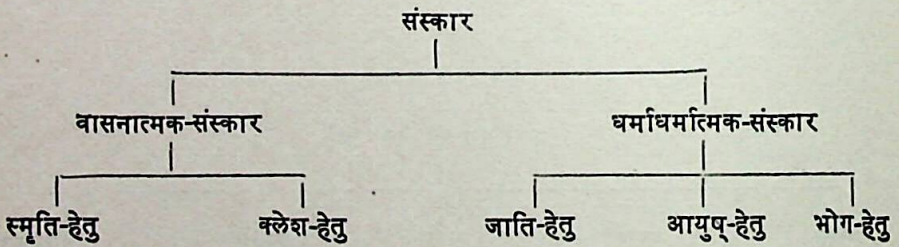 संस्कार
वासनात्मक-संस्कार धर्माधर्मात्मक-संस्कार
स्मृति-हेतु क्लेश-हेतु जाति-हेतु आयुष्-हेतु भोग-हेतु